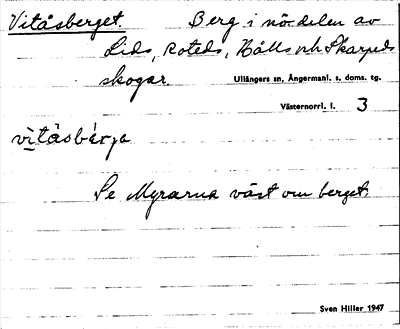 Vitåsberget. Berg i nö. delen av
Lids, Roteds, Hålls och Skarpeds
skogar. Ullångers sn, Ångermanl. s. doms. tg.
Västernorrl. l. 3
vìtåsbérja
Se Myrarna väst om berget.
Sven Hiller 1947